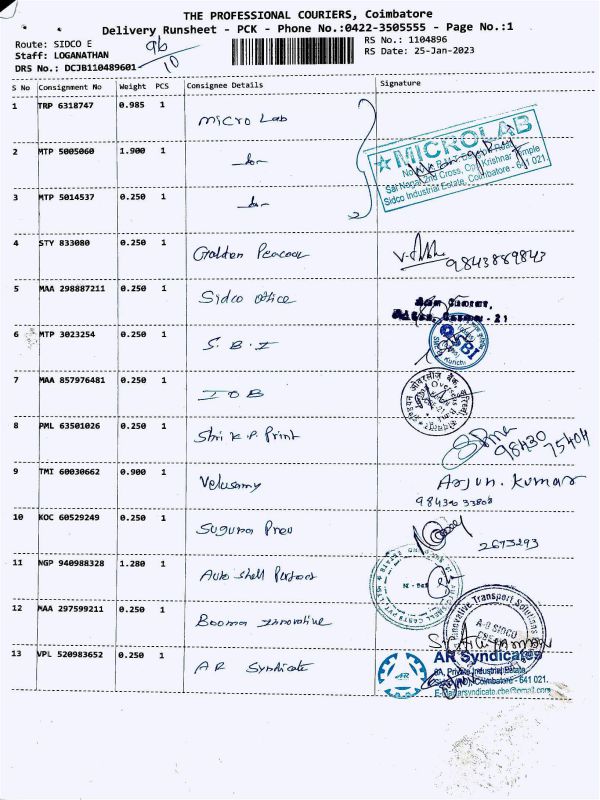 THE PROFESSIONAL COURIERS, Coimbatore
Delivery Runsheet - PCK - Phone No.:0422-3505555 - Page No.:1
Route: SIDCO E
Staff: LOGANATHAN
DRS No.: DCJB110489601
RS No.: 1104896
RS Date: 25-Jan-2023
S No Consignment No Weight PCS Consignee Details Signature
1 TRP 6318747 0.985 1 Micro Lab
MICROLAB
2 MTP 5005060 1.900 1 -do-
2nd Cross, Opp. Krishnar Temple
Sidco Industrial Estate, Coimbatore - 641 021.
3 MTP 5014537 0.250 1 -do-
4 STY 833080 0.250 1 Golden Peacock 9843889843
5 MAA 298887211 0.250 1 Sidco office
6 MTP 3023254 0.250 1 S.B.I
SBI
7 MAA 857976481 0.250 1 IOB
8 PML 63501026 0.250 1 Shri K.P. Print 98430 75404
9 TMI 60030662 0.900 1 Velusamy Arjun. Kumar
10 KOC 60529249 0.250 1 Suguna 2673293
11 NGP 940988328 1.280 1 Auto Shell
12 MAA 297599211 0.250 1 Booma Innovative
Innovative Transport Solutions
13 VPL 520983652 0.250 1 AR Syndicate
AR Syndicates
AR
8A, Private Industrial Estate,
Coimbatore - 641 021.